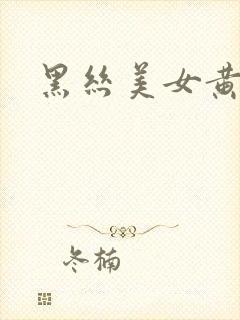 黑丝美女黄
冬楠